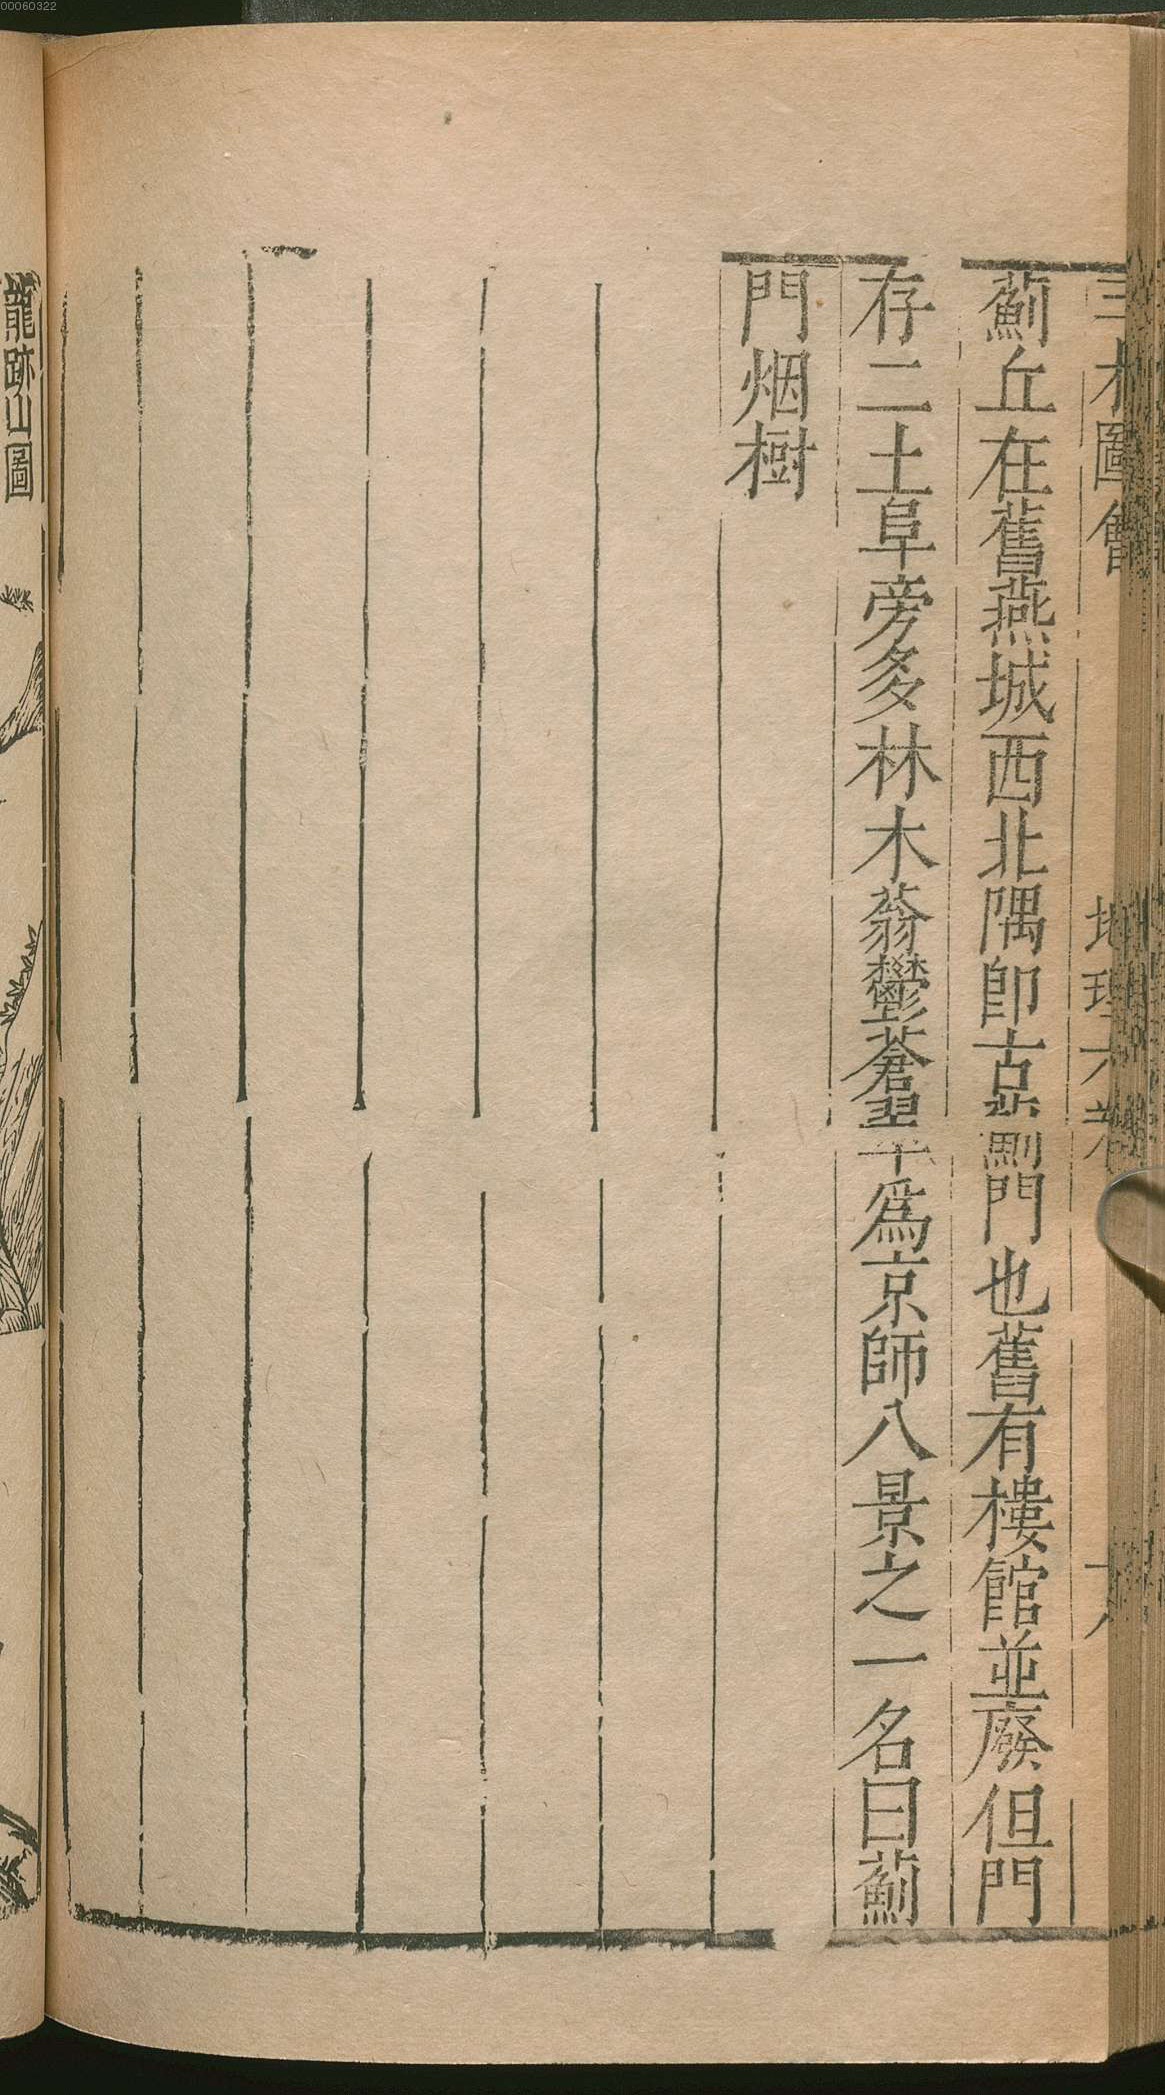 三才圖會 地理六卷 十八
薊丘在舊燕城西北隅卽古薊門也舊有樓館並廢但門
存二土阜旁多林木蓊鬱蒼翠爲京師八景之一名曰薊
門烟樹
龍跡山圖
00060322